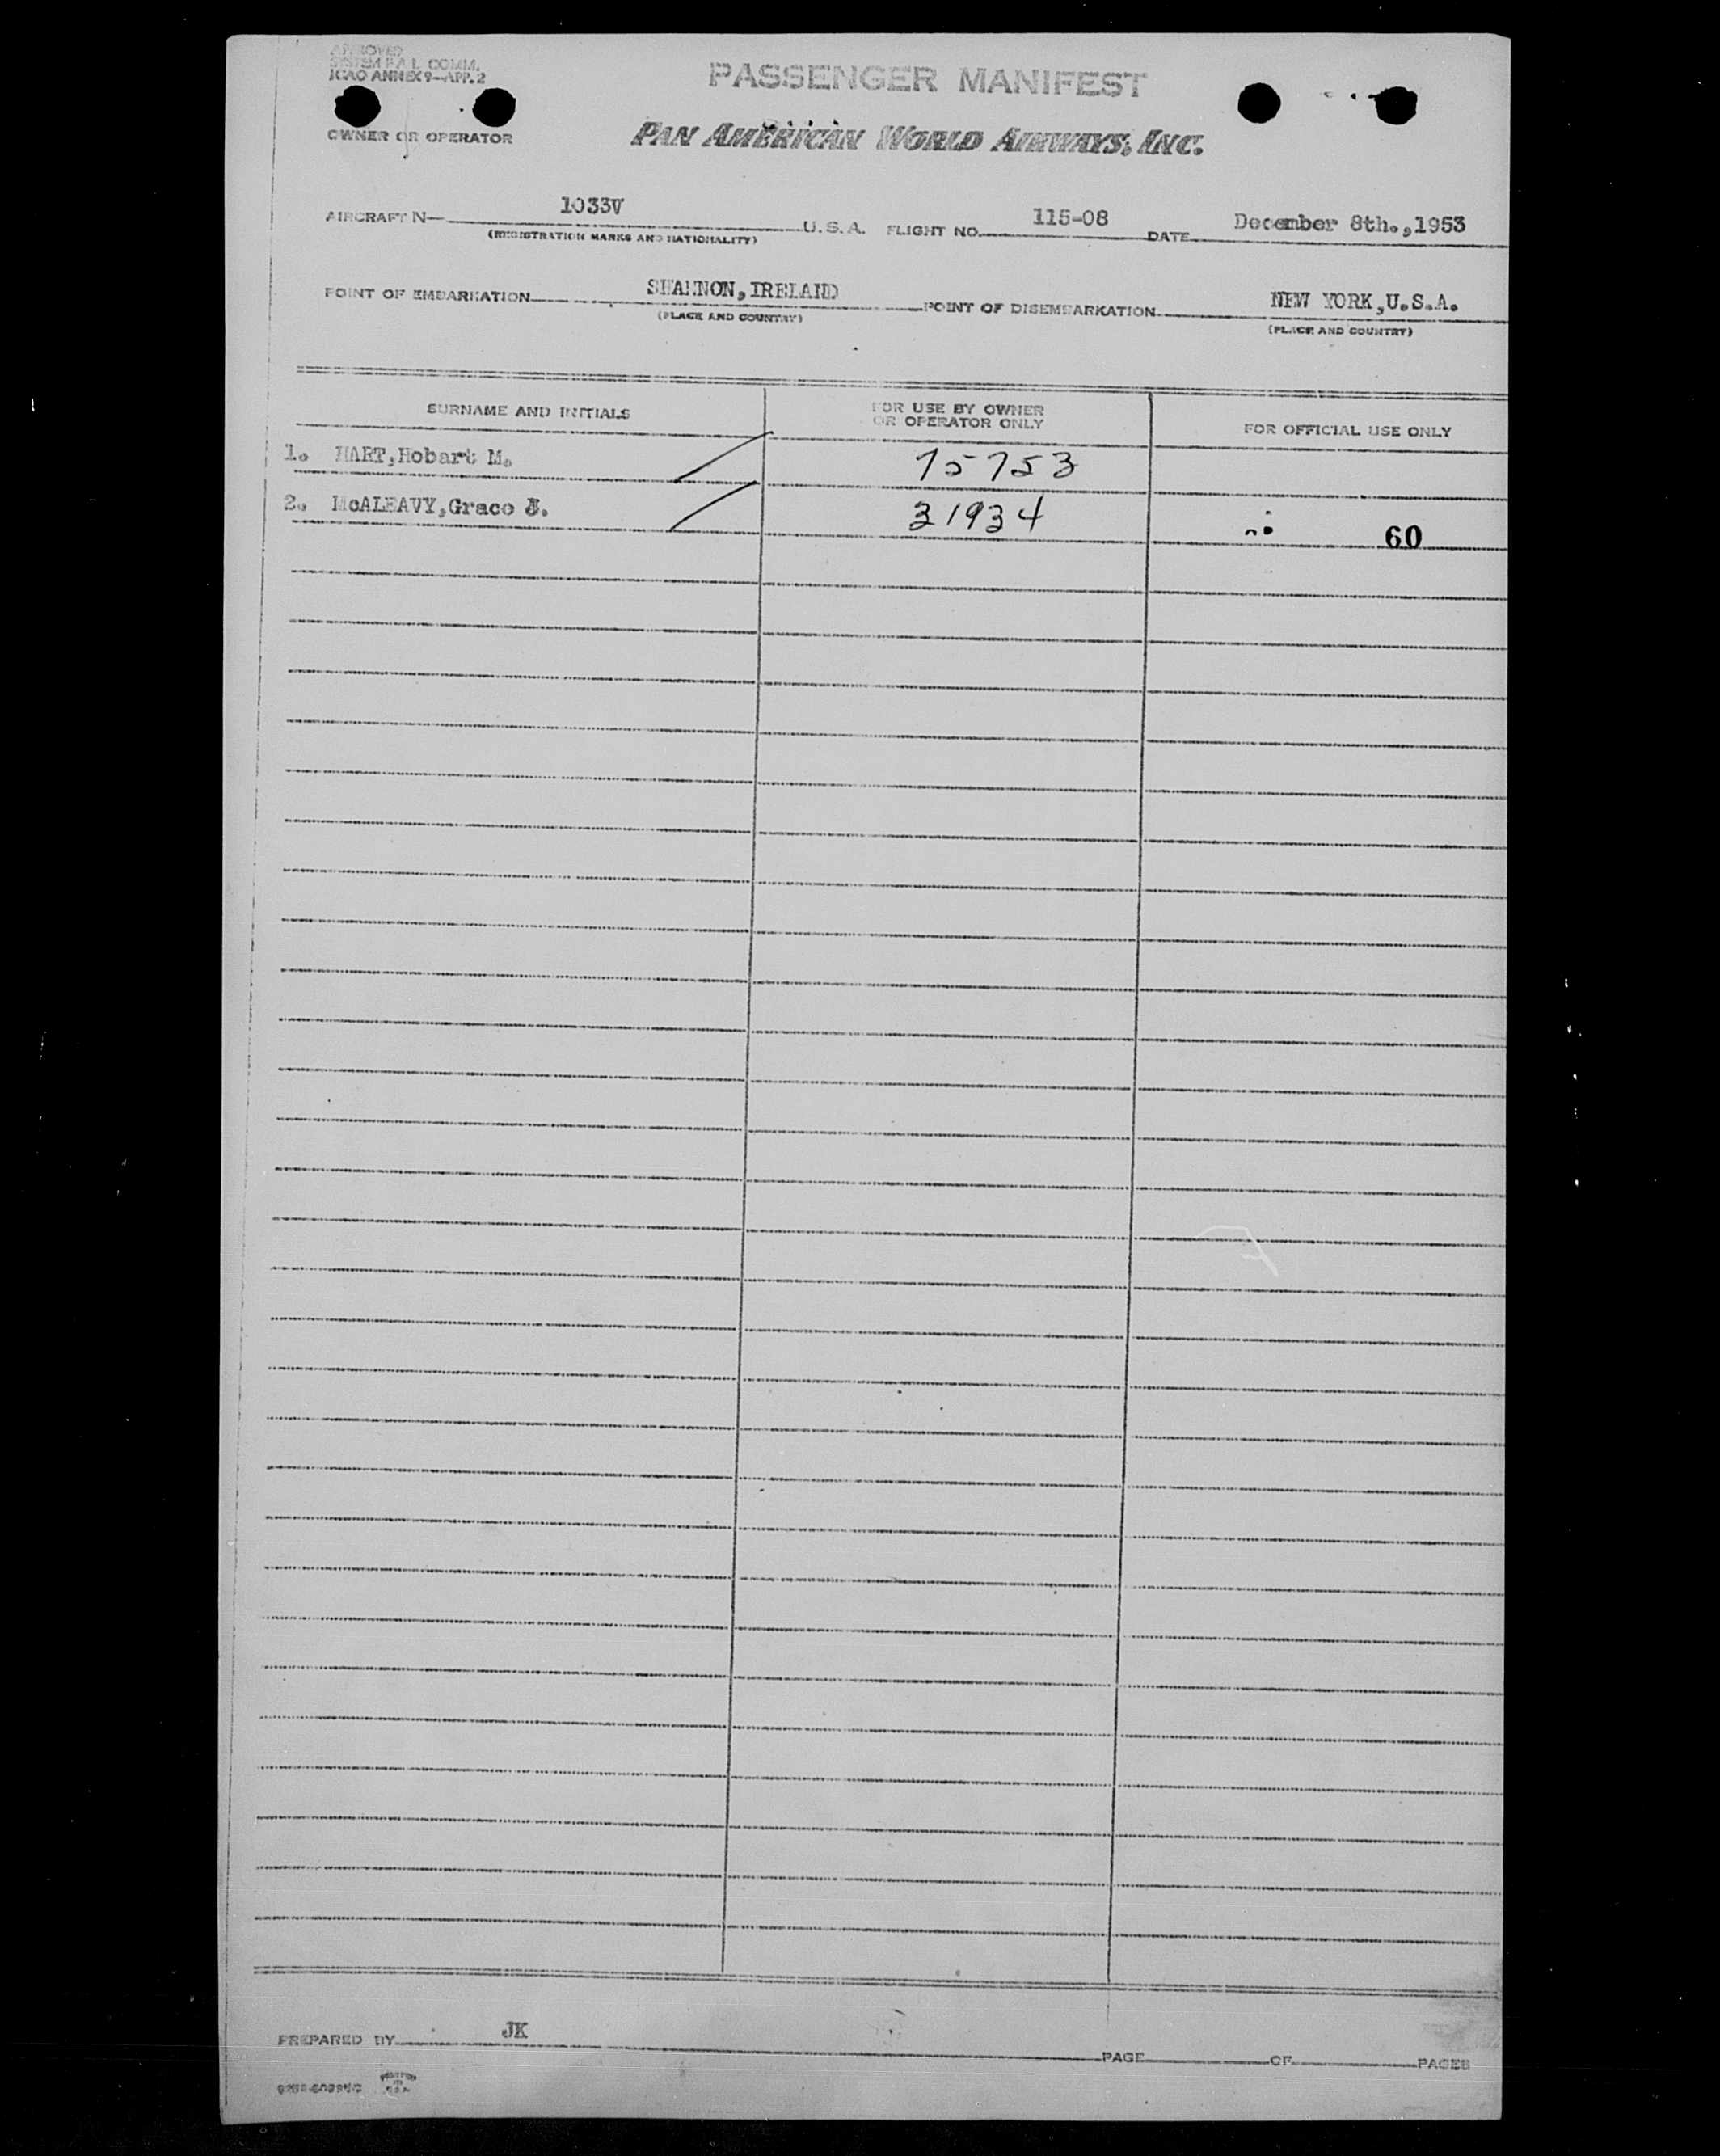 APPROVED
SYSTEM F.A.L. COMM.
ICAO ANNEX 9-APP. 2
PASSENGER MANIFEST
OWNER OR OPERATOR
PAN AMERICAN WORLD AIRWAYS, INC.
AIRCRAFT N— 1033V U.S.A. FLIGHT NO. 115-08 DATE December 8th.,1953
(REGISTRATION MARKS AND NATIONALITY)
POINT OF EMBARKATION SHANNON,IRELAND POINT OF DISEMBARKATION NEW YORK,U.S.A.
(PLACE AND COUNTRY) (PLACE AND COUNTRY)
SURNAME AND INITIALS FOR USE BY OWNER OR OPERATOR ONLY FOR OFFICIAL USE ONLY
1. HART,Hobart M. 75753
2. McALEAVY,Grace J. 31934
60
PREPARED BY JK PAGE OF PAGES